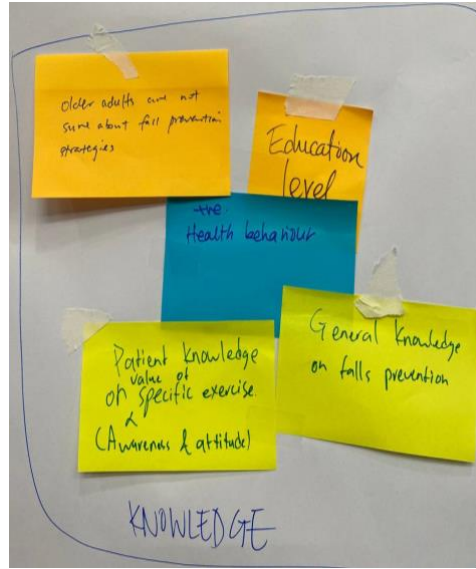 Older adults are not
sure about fall prevention
strategies
Education
level
the
Health behaviour
Patient Knowledge
value of
on specific exercise.
&
(Awareness & attitude)
General Knowledge
on falls prevention
KNOWLEDGE